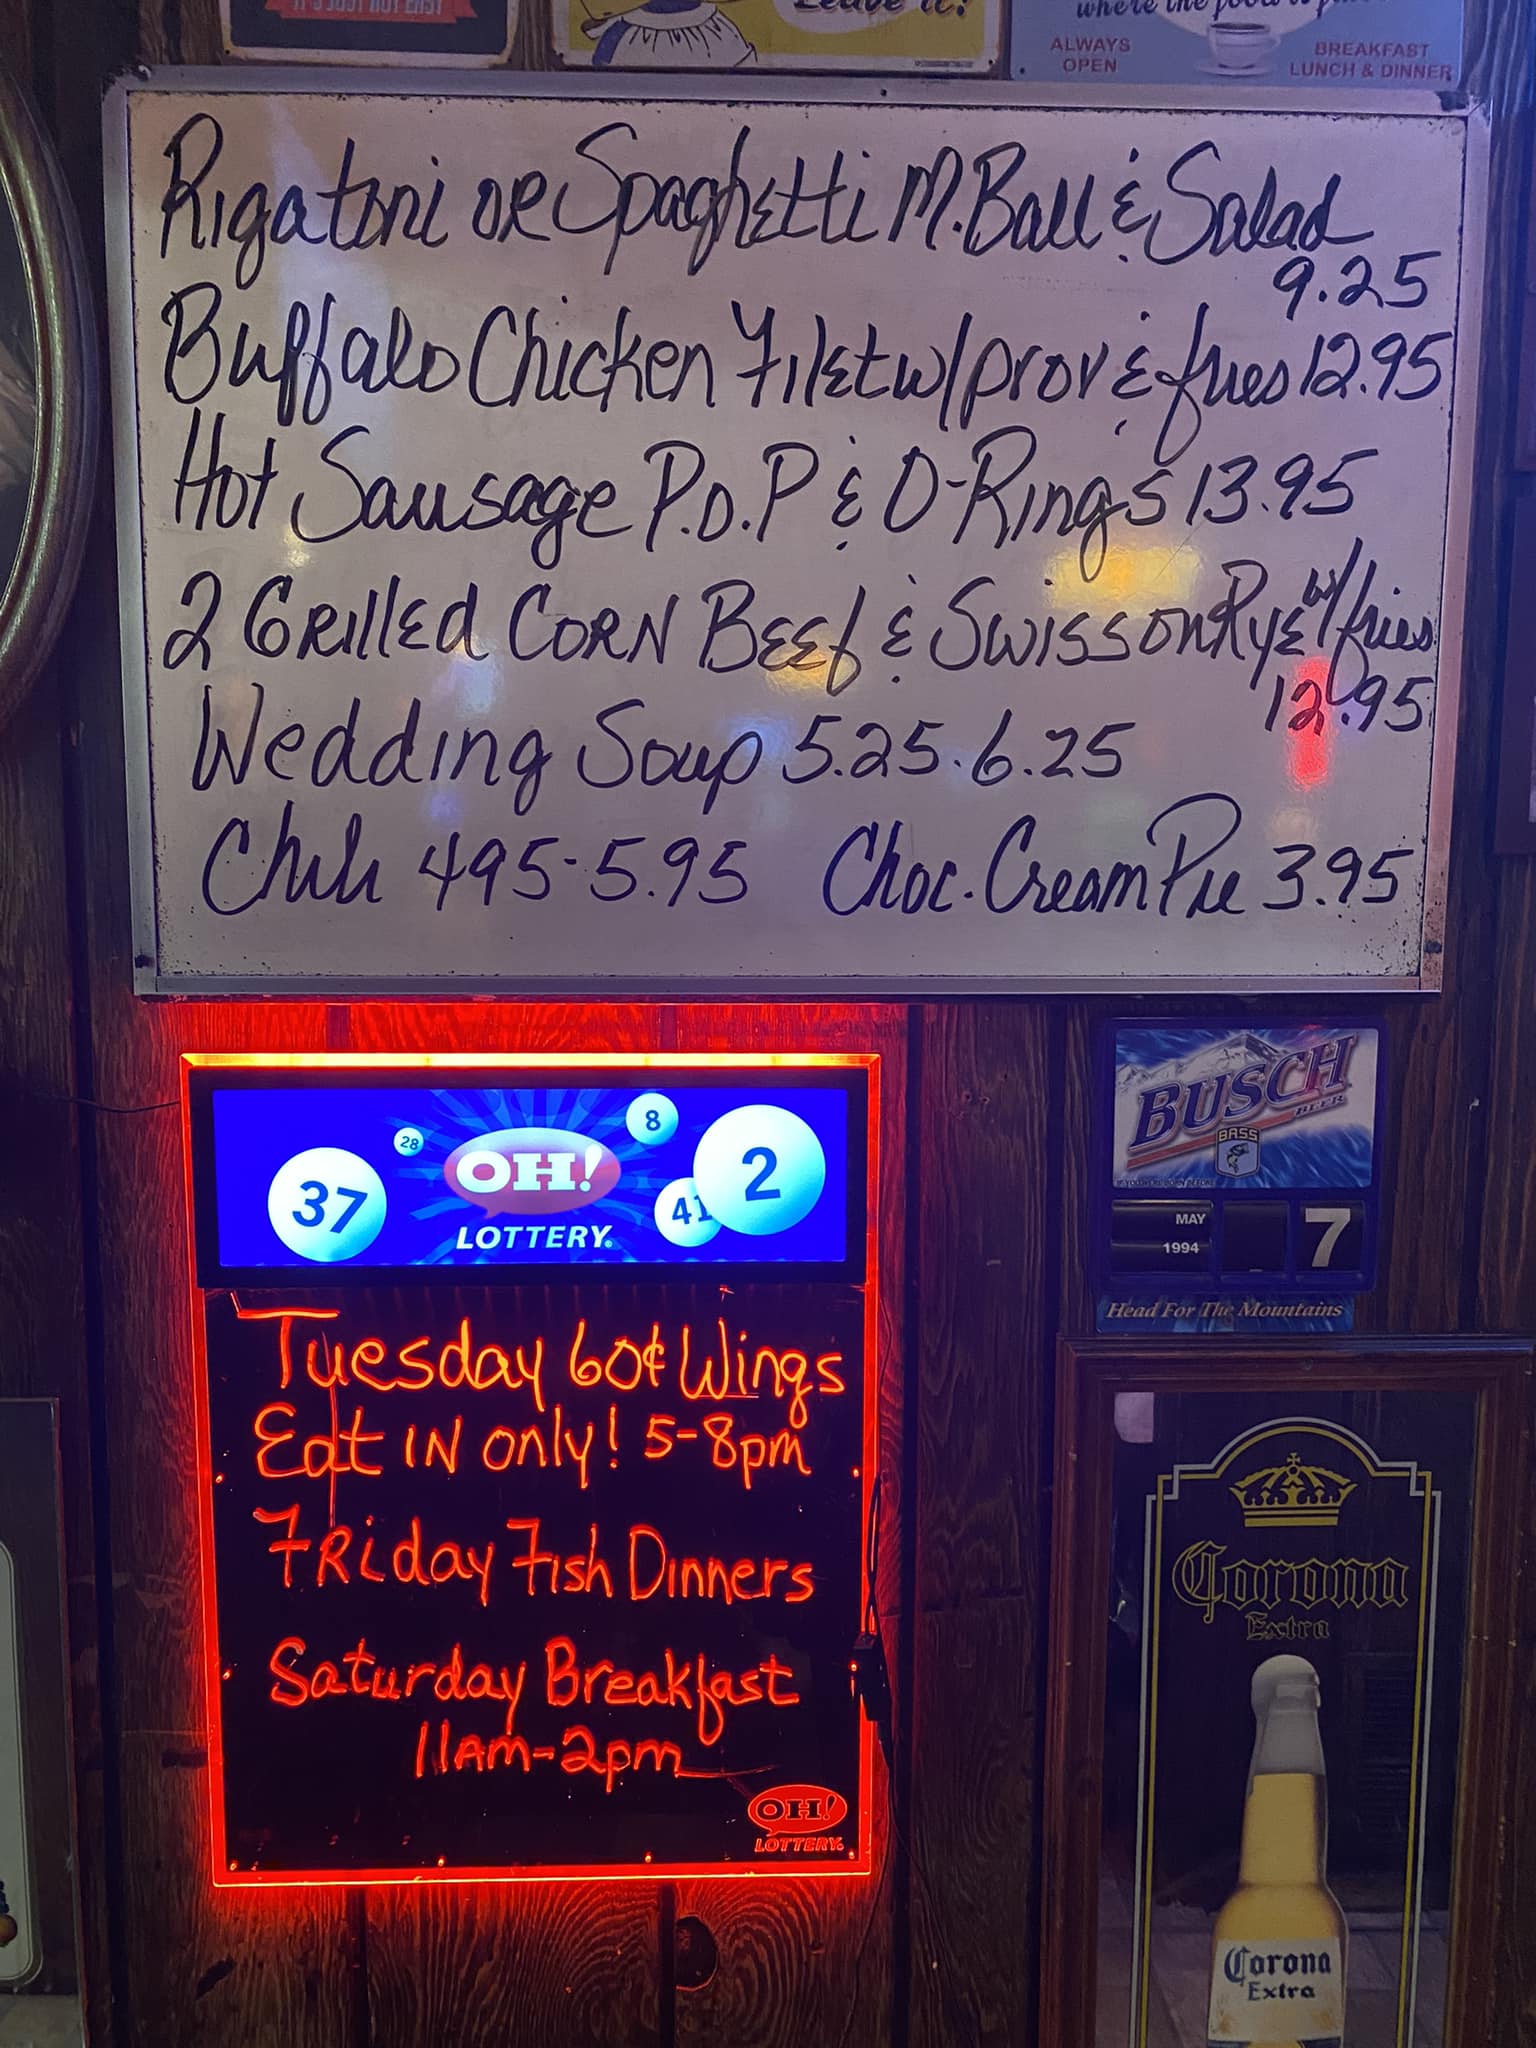 IT'S JUST NOT EASY
Leave it!
where the food is
ALWAYS
OPEN
BREAKFAST
LUNCH & DINNER
Rigatoni or Spaghetti M. Ball & Salad
9.25
Buffalo Chicken Filet w/prov & fries 12.95
Hot Sausage P.O.P & O-Rings 13.95
2 Grilled Corn Beef & Swiss on Rye w/fries
12.95
Wedding Soup 5.25 - 6.25
Chili 495-5.95 Choc. Cream Pie 3.95
37 28 OH! 8 41 2
LOTTERY.
Tuesday 60¢ Wings
Eat IN only! 5-8pm
Friday Fish Dinners
Saturday Breakfast
11AM-2pm
OH!
LOTTERY.
BUSCH
BEER
BASS
MAY
1994
7
Head For The Mountains
Corona
Extra
Corona
Extra